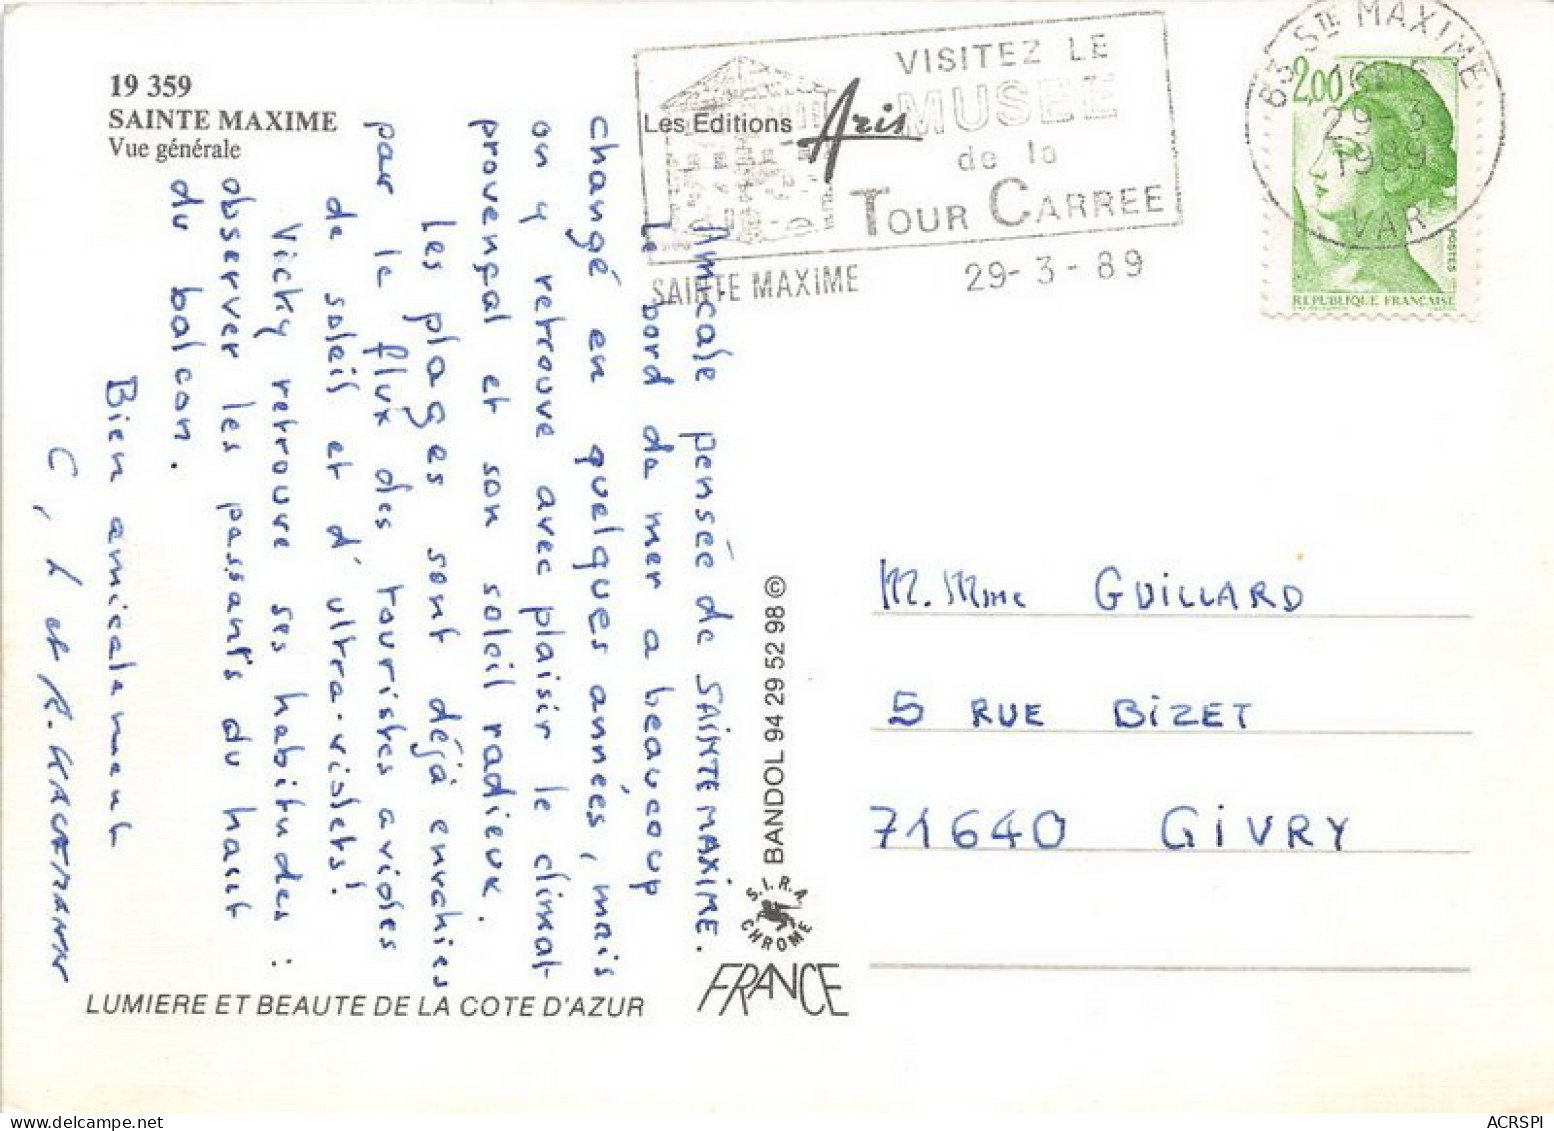 19 359
SAINTE MAXIME
Vue générale
Les Editions Aris
VISITEZ LE
MUSEE
de la
TOUR CARREE
SAINTE MAXIME 29-3-89
83 STE MAXIME
29-3
1989
VAR
2,00
POSTES
REPUBLIQUE FRANÇAISE
Amicale pensée de SAINTE MAXIME.
Le bord de mer a beaucoup
changé en quelques années, mais
on y retrouve avec plaisir le climat
provençal et son soleil radieux.
Les plages sont déjà envahies
par le flux des touristes avides
de soleil et d'ultra-violets!
Vicky retrouve ses habitudes :
observer les passants du haut
du balcon.
Bien amicalement
C, L et R.
M. Mme GUILLARD
5 RUE BIZET
71640 GIVRY
BANDOL 94 29 52 98 ©
S.I.R.A.
CHROME
FRANCE
LUMIERE ET BEAUTE DE LA COTE D'AZUR
ACRSPI